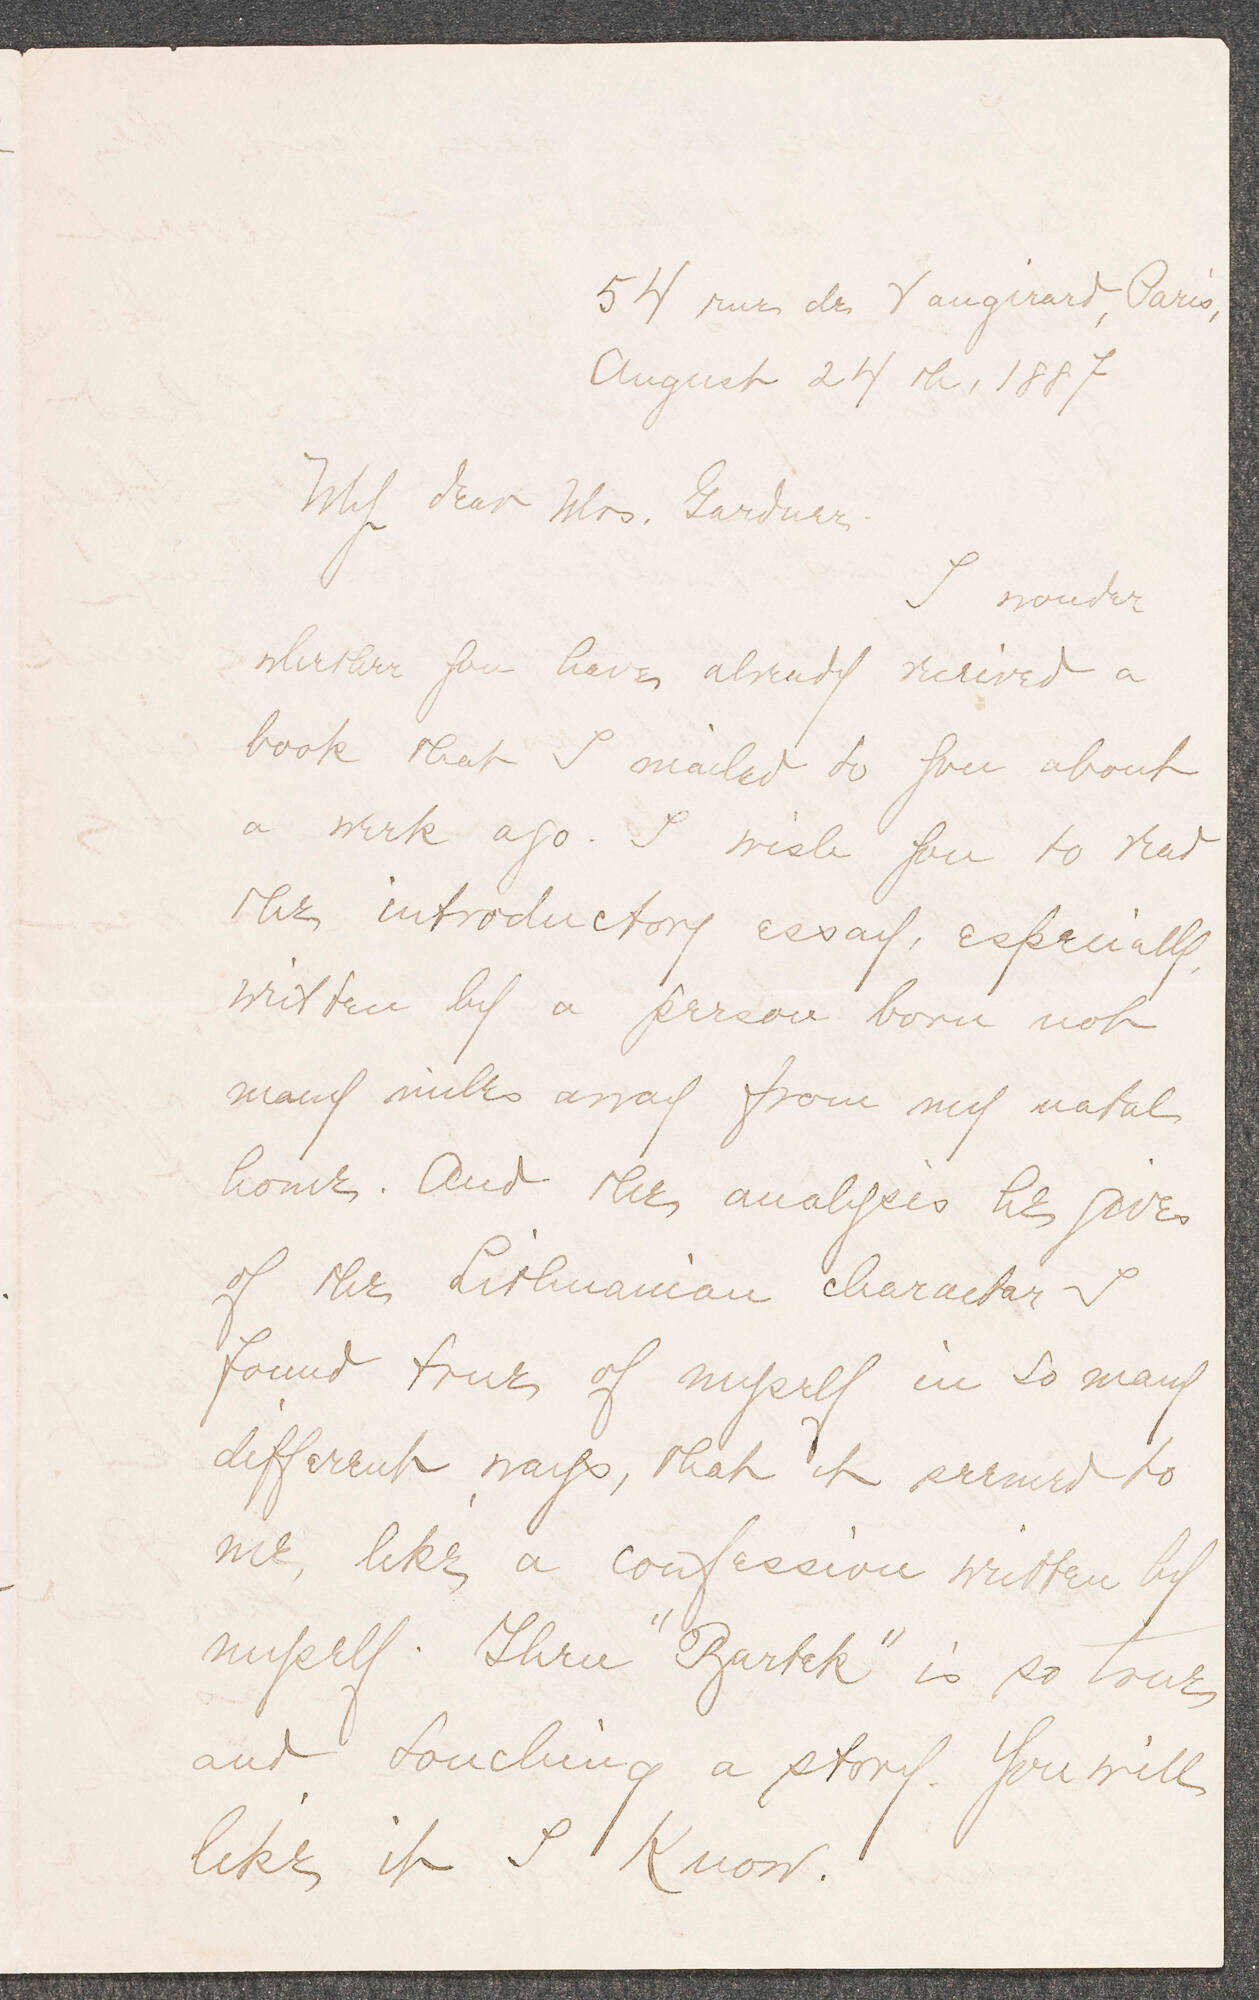 54 rue de Vaugirard, Paris,
August 24th, 1887
My dear Mrs. Gardner.
I wonder
whether you have already recived a
book that I mailed to you about
a week ago. I wish you to read
the introductory essay, especially,
written by a person born not
many miles away from my natal
home. And the analysis he gives
of the Lithuanian character I
found true of myself in so many
different ways, that it seemed to
me, like a confession written by
myself. Then "Bartek" is so true
and touching a story. You will
like it I know.